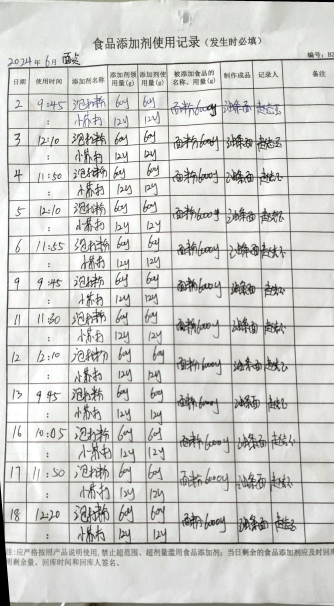 食品添加剂使用记录（发生时必填）
2024年6月 面点 编号：B2
日期 使用时间 添加剂名称 添加剂领用量(g) 添加剂使用量(g) 被添加食品的名称、用量(g) 制作成品 记录人 备注
2 9:45 泡打粉 60g 60g 面粉6000g 油条面
: 小苏打 12g 12g
3 12:10 泡打粉 60g 60g 面粉6000g 油条面
: 小苏打 12g 12g
4 11:50 泡打粉 60g 60g 面粉6000g 油条面
: 小苏打 12g 12g
5 12:10 泡打粉 60g 60g 面粉6000g 油条面
: 小苏打 12g 12g
6 11:55 泡打粉 60g 60g 面粉6000g 油条面
: 小苏打 12g 12g
9 9:45 泡打粉 60g 60g 面粉6000g 油条面
: 小苏打 12g 12g
11 11:30 泡打粉 60g 60g 面粉6000g 油条面
: 小苏打 12g 12g
12 12:10 泡打粉 60g 60g 面粉6000g 油条面
: 小苏打 12g 12g
13 9:45 泡打粉 60g 60g 面粉6000g 油条面
: 小苏打 12g 12g
16 10:05 泡打粉 60g 60g 面粉6000g 油条面
: 小苏打 12g 12g
17 11:50 泡打粉 60g 60g 面粉6000g 油条面
: 小苏打 12g 12g
18 12:20 泡打粉 60g 60g 面粉6000g 油条面
: 小苏打 12g 12g
注:应严格按照产品说明使用,禁止超范围、超剂量滥用食品添加剂；当日剩余的食品添加剂应及时回库
用剩余量、回库时间和回库人签名。